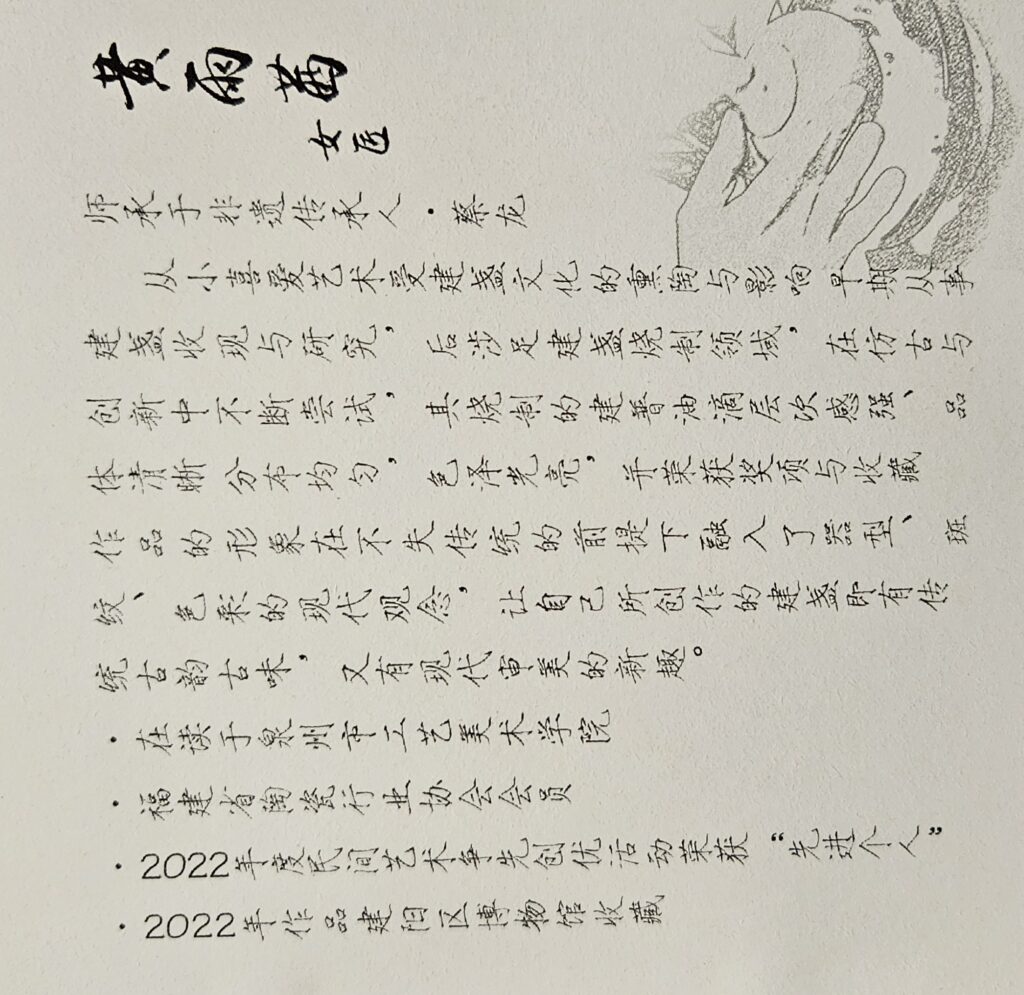 黃雨茜
女匠
师承于非遗传承人·蔡龙
从小喜爱艺术受建盏文化的熏陶与影响 早期从事
建盏收现与研究，后涉足建盏烧制领域，在仿古与
创新中不断尝试，其烧制的建普油滴层次感强、品
体清晰 分布均匀，色泽光亮，并荣获奖项与收藏
作品的形象在不失传统的前提下融入了器型、班
纹、色彩的现代观念，让自己所创作的建盏即有传
统古韵古味，又有现代审美的新趣。
·在读于泉州市工艺美术学院
·福建省陶瓷行业协会会员
·2022年度民间艺术争先创优活动荣获“先进个人”
·2022年作品建阳区博物馆收藏